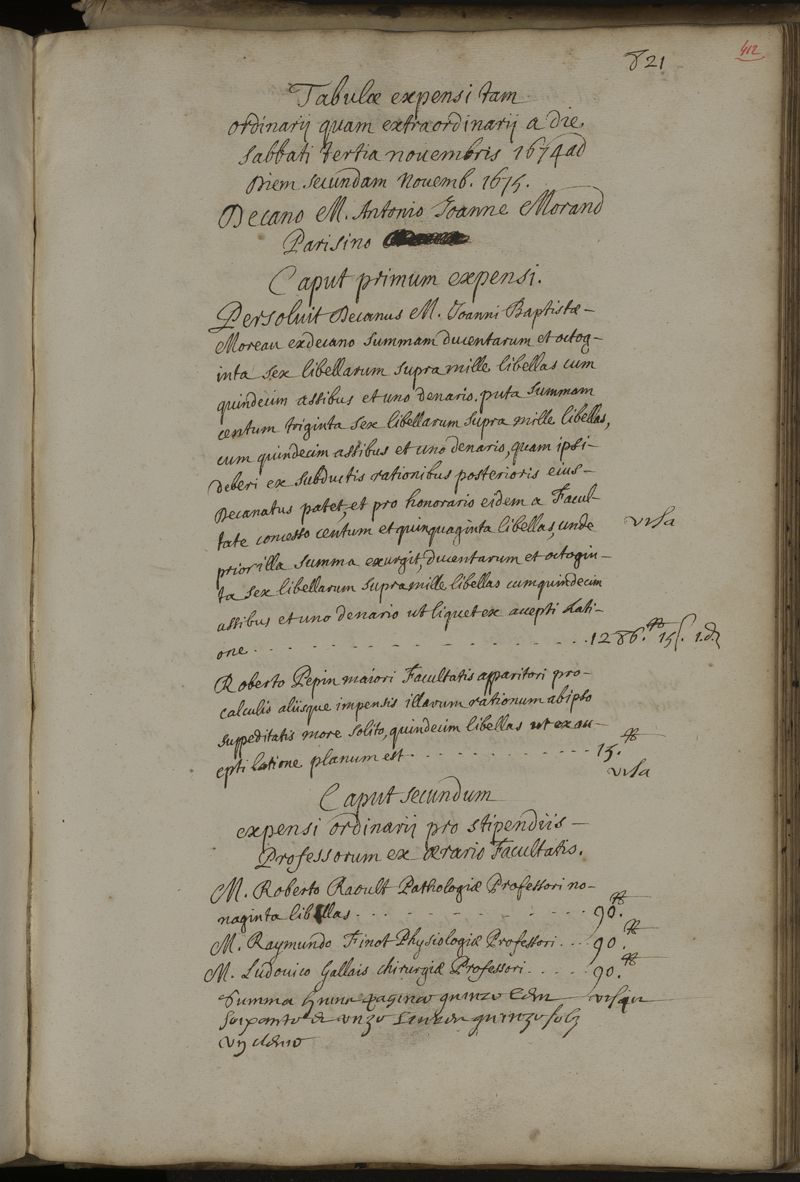 412
821
Tabulæ expensi tam
ordinarij quam extraordinarij a die
sabbati tertia novembris 1674 ad
Diem secundam Novemb. 1675.
Decano M. Antonio Joanne Morand
Parisino
Caput primum expensi.
Persoluit Decanus M. Joanni Baptistæ
Moreau exdecano summam ducentarum et octog-
inta sex libellarum supra mille libellas cum
quindecim assibus et uno denario, puta summam
centum triginta sex libellarum supra mille libellas,
cum quindecim assibus et uno denario, quam ipsi
deberi ex subductis rationibus posterioris eius
Decanatus patet, et pro honorario eidem a Facul-
tate concesso centum et quinquaginta libellas, unde visa
prior illa summa exurgit, ducentarum et octogin-
ta sex libellarum supra mille libellas cum quindecim
assibus et uno denario ut liquet ex accepti Lati-
one . . . 1286.₶ 15 s. 1.d
Roberto Pepin maiori Facultatis apparitori pro
calculis aliisque impensis illarum rationum ab ipso
suppeditatis more solito, quindecim libellas ut ex ac-
cepti latione planum est . . . 15.₶
visa
Caput secundum
expensi ordinarij pro stipendiis
Professorum ex ærario Facultatis.
M. Roberto Raoult Pathologiæ Professori no-
naginta libellas . . . 90.₶
M. Raymundo Finot Physiologiæ Professori . . . 90.₶
M. Ludovico Gallais chirurgiæ Professori . . . 90.₶
Summa huius paginæ quinze cens
soixante et unze livres quinze solz
un denier